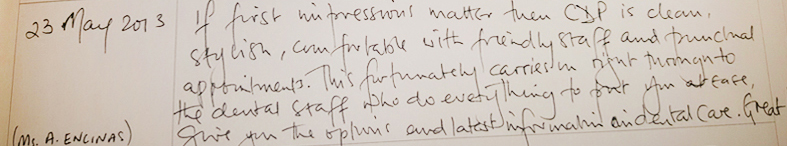 23 May 2013
If first impressions matter then CDP is clean,
stylish, comfortable with friendly staff and punctual
appointments. This fortunately carries on right through to
the dental staff who do everything to put you at ease,
give you the options and latest information on dental care. Great
(Ms. A. ENCINAS)